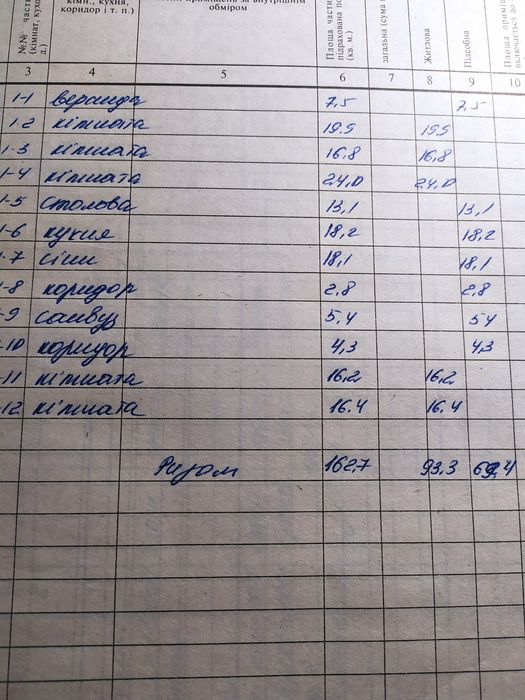 №№ част
(кімнат, кухо
д.)
кімн., кухня,
коридор і т. п.)
приміщень за внутрішнім
обміром
Площа части
підрахована по
(кв. м.)
загальна (сума
Житлова
Підсобна
Площа приміщ
включається до
3 4 5 6 7 8 9 10
1-1 веранда 7,5 7,5
1.2 кімната 19.5 19.5
1-3 кімната 16,8 16,8
1-4 кімната 24,0 24,0
1-5 столова 13,1 13,1
1-6 кухня 18,2 18,2
1-7 сіни 18,1 18,1
-8 коридор 2,8 2,8
-9 санвуз 5,4 5,4
-10 коридор 4,3 4,3
-11 кімната 16,2 16,2
-12 кімната 16.4 16.4
Разом 162,7 93,3 69,4